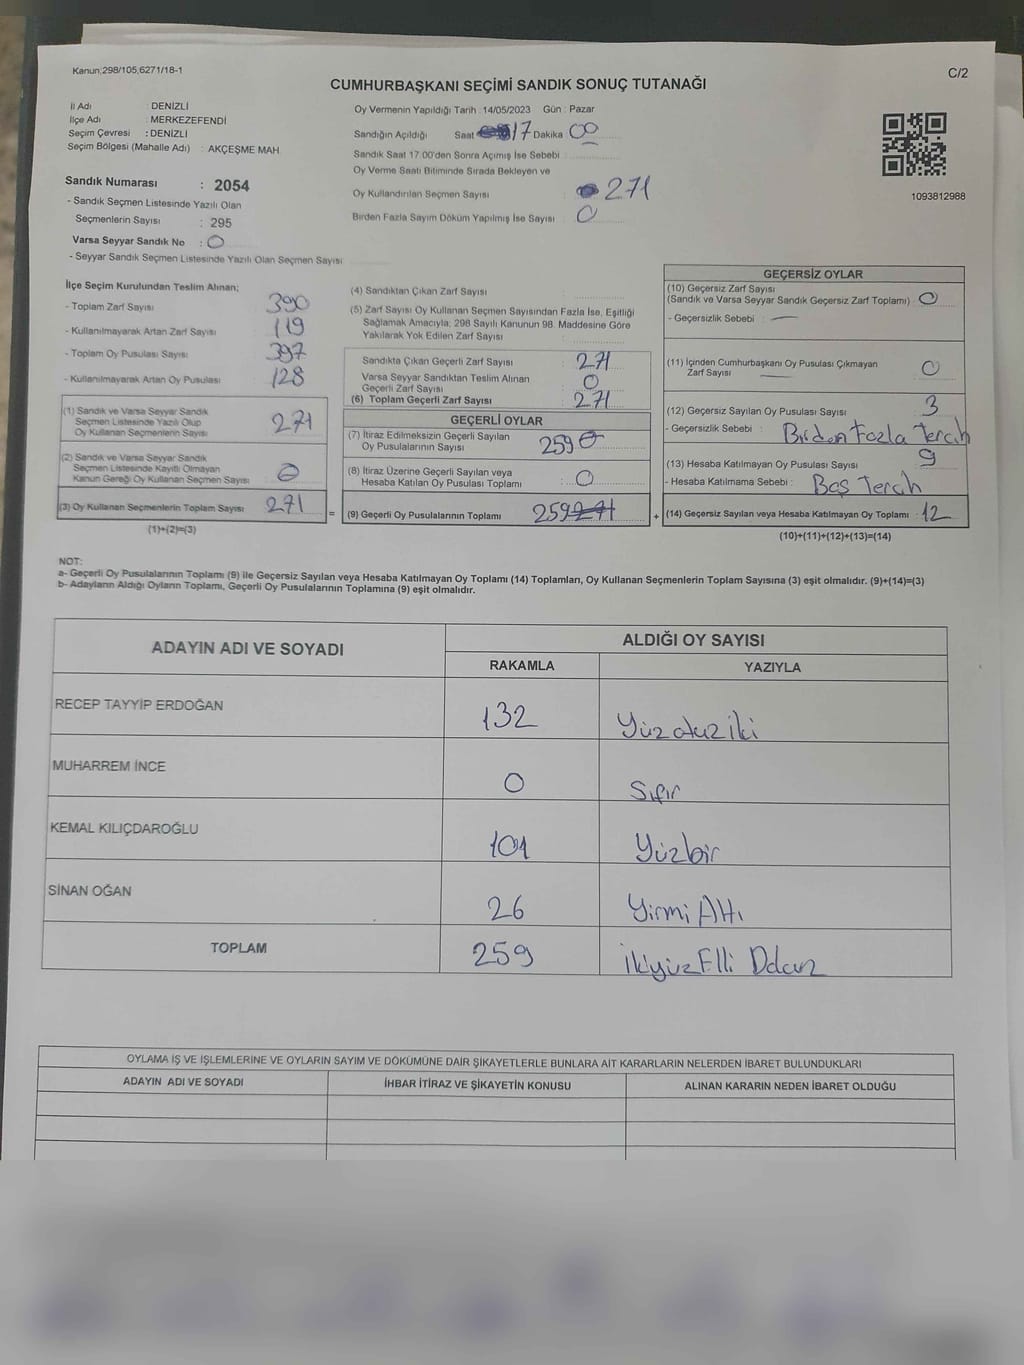 Kanun;298/105,6271/18-1
C/2
CUMHURBAŞKANI SEÇİMİ SANDIK SONUÇ TUTANAĞI
İl Adı : DENİZLİ
İlçe Adı : MERKEZEFENDİ
Seçim Çevresi : DENİZLİ
Seçim Bölgesi (Mahalle Adı) : AKÇEŞME MAH.
Oy Vermenin Yapıldığı Tarih : 14/05/2023 Gün : Pazar
Sandığın Açıldığı Saat 17 Dakika 00
Sandık Saat 17:00'den Sonra Açımış İse Sebebi :
Oy Verme Saati Bitiminde Sırada Bekleyen ve
Oy Kullandırılan Seçmen Sayısı : 271
Birden Fazla Sayım Döküm Yapılmış İse Sayısı : 0
1093812988
Sandık Numarası : 2054
- Sandık Seçmen Listesinde Yazılı Olan
Seçmenlerin Sayısı : 295
Varsa Seyyar Sandık No : 0
- Seyyar Sandık Seçmen Listesinde Yazılı Olan Seçmen Sayısı
İlçe Seçim Kurulundan Teslim Alınan;
- Toplam Zarf Sayısı 390
- Kullanılmayarak Artan Zarf Sayısı 119
- Toplam Oy Pusulası Sayısı 397
- Kullanılmayarak Artan Oy Pusulası 128
(1) Sandık ve Varsa Seyyar Sandık
Seçmen Listesinde Yazılı Olup
Oy Kullanan Seçmenlerin Sayısı 271
(2) Sandık ve Varsa Seyyar Sandık
Seçmen Listesinde Kayıtlı Olmayan
Kanun Gereği Oy Kullanan Seçmen Sayısı 0
(3) Oy Kullanan Seçmenlerin Toplam Sayısı 271
(1)+(2)=(3)
(4) Sandıktan Çıkan Zarf Sayısı :
(5) Zarf Sayısı Oy Kullanan Seçmen Sayısından Fazla İse, Eşitliği
Sağlamak Amacıyla; 298 Sayılı Kanunun 98. Maddesine Göre
Yakılarak Yok Edilen Zarf Sayısı :
Sandıkta Çıkan Geçerli Zarf Sayısı : 271
Varsa Seyyar Sandıktan Teslim Alınan
Geçerli Zarf Sayısı : 0
(6) Toplam Geçerli Zarf Sayısı : 271
GEÇERLİ OYLAR
(7) İtiraz Edilmeksizin Geçerli Sayılan
Oy Pusulalarının Sayısı 259
(8) İtiraz Üzerine Geçerli Sayılan veya
Hesaba Katılan Oy Pusulası Toplamı : 0
= (9) Geçerli Oy Pusulalarının Toplamı 259 271 +
GEÇERSİZ OYLAR
(10) Geçersiz Zarf Sayısı
(Sandık ve Varsa Seyyar Sandık Geçersiz Zarf Toplamı) : 0
- Geçersizlik Sebebi :
(11) İçinden Cumhurbaşkanı Oy Pusulası Çıkmayan
Zarf Sayısı 0
(12) Geçersiz Sayılan Oy Pusulası Sayısı 3
- Geçersizlik Sebebi : Birden Fazla Tercih
(13) Hesaba Katılmayan Oy Pusulası Sayısı 9
- Hesaba Katılmama Sebebi : Boş Tercih
(14) Geçersiz Sayılan veya Hesaba Katılmayan Oy Toplamı : 12
(10)+(11)+(12)+(13)=(14)
NOT:
a- Geçerli Oy Pusulalarının Toplamı (9) ile Geçersiz Sayılan veya Hesaba Katılmayan Oy Toplamı (14) Toplamları, Oy Kullanan Seçmenlerin Toplam Sayısına (3) eşit olmalıdır. (9)+(14)=(3)
b- Adayların Aldığı Oyların Toplamı, Geçerli Oy Pusulalarının Toplamına (9) eşit olmalıdır.
ADAYIN ADI VE SOYADI
ALDIĞI OY SAYISI
RAKAMLA YAZIYLA
RECEP TAYYİP ERDOĞAN 132 Yüz otuz iki
MUHARREM İNCE 0 Sıfır
KEMAL KILIÇDAROĞLU 101 Yüzbir
SİNAN OĞAN 26 Yirmi Altı
TOPLAM 259 İkiyüz Elli Dokuz
OYLAMA İŞ VE İŞLEMLERİNE VE OYLARIN SAYIM VE DÖKÜMÜNE DAİR ŞİKAYETLERLE BUNLARA AİT KARARLARIN NELERDEN İBARET BULUNDUKLARI
ADAYIN ADI VE SOYADI İHBAR İTİRAZ VE ŞİKAYETİN KONUSU ALINAN KARARIN NEDEN İBARET OLDUĞU